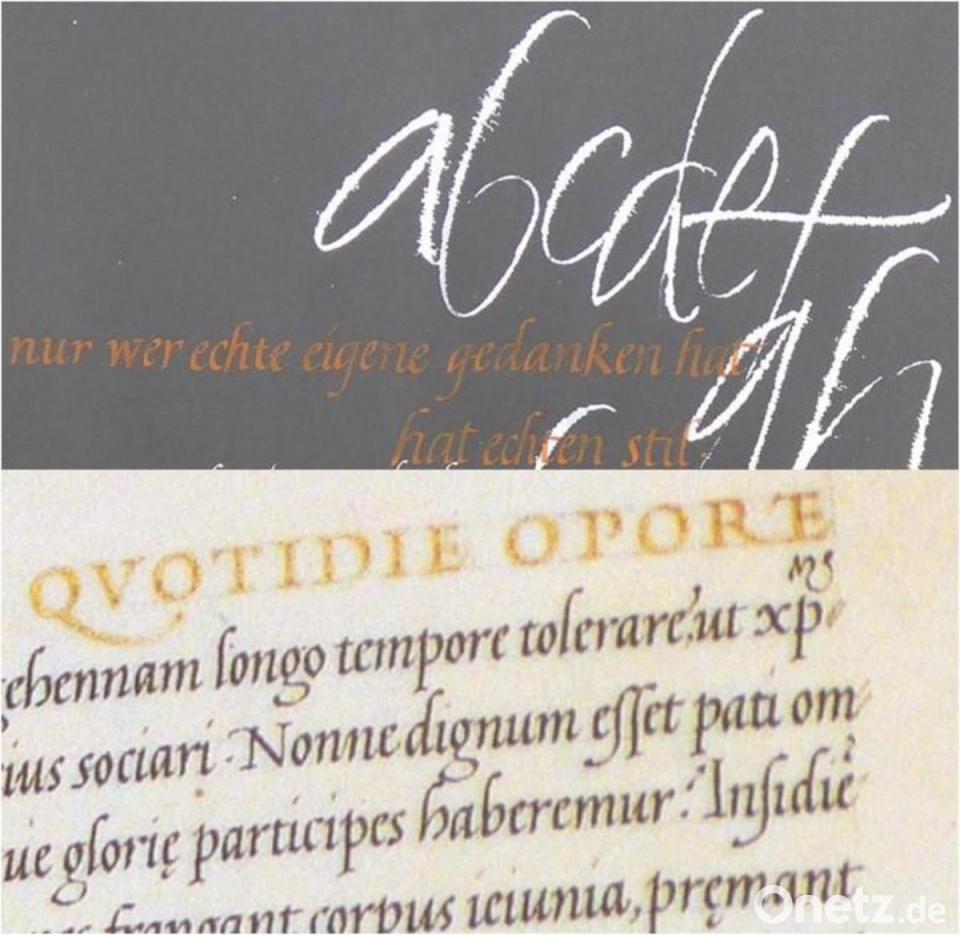 abcdef
gh
nur wer echte eigene gedanken hat
hat echten stil
QVOTIDIE OPORE
ehennam longo tempore tolerare, ut xp
ius sociari. Nonne dignum eſſet pati om
ue glorię participes haberemur. Inſidię
frangant corpus ieiunia, pręmant
Onetz.de